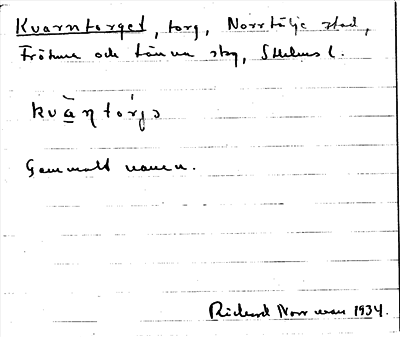 Kvarntorget, torg, Norrtälje stad,
Frötuna och Länna skg, Sthlms l.
kvàṇtórjə
Gammalt namn.
Rickard Norrman 1934.